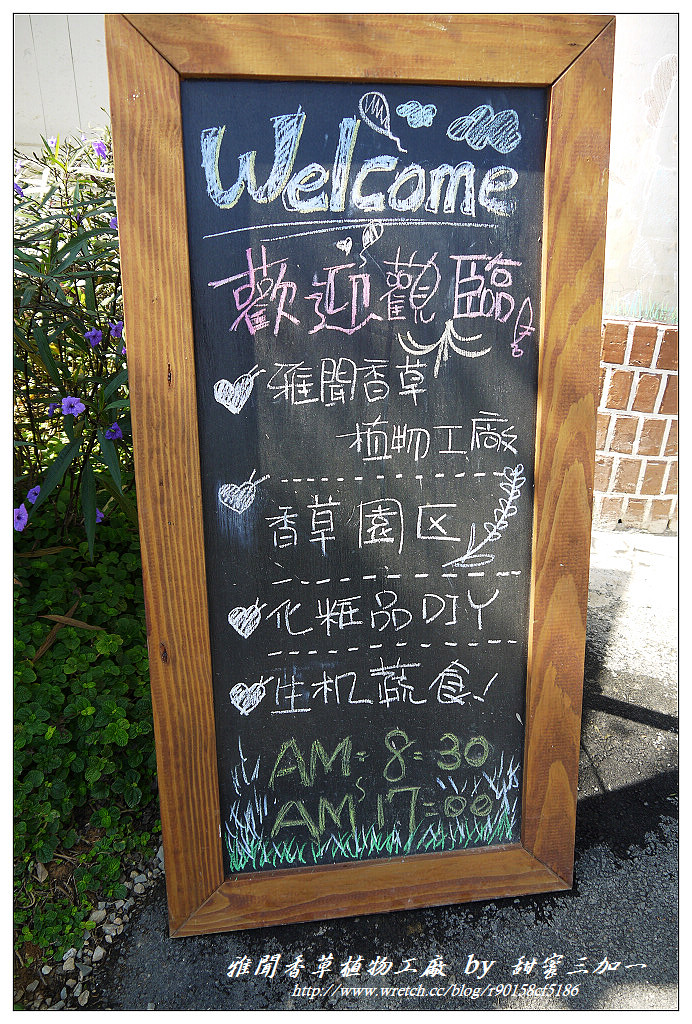 Welcome
歡迎觀臨
雅聞香草
植物工廠
香草園区
化粧品DIY
生机蔬食!
AM=8=30
AM 17=00
雅聞香草植物工廠 by 甜蜜三加一
http://www.wretch.cc/blog/r90158cf5186